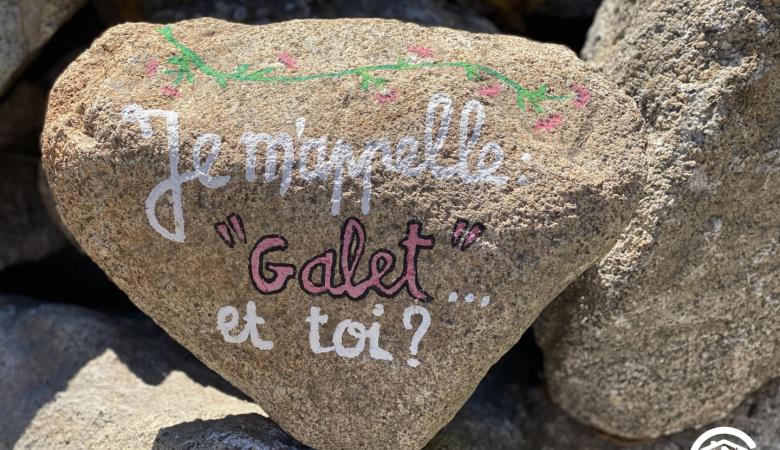 Je m'appelle :
"Galet" ...
et toi ?